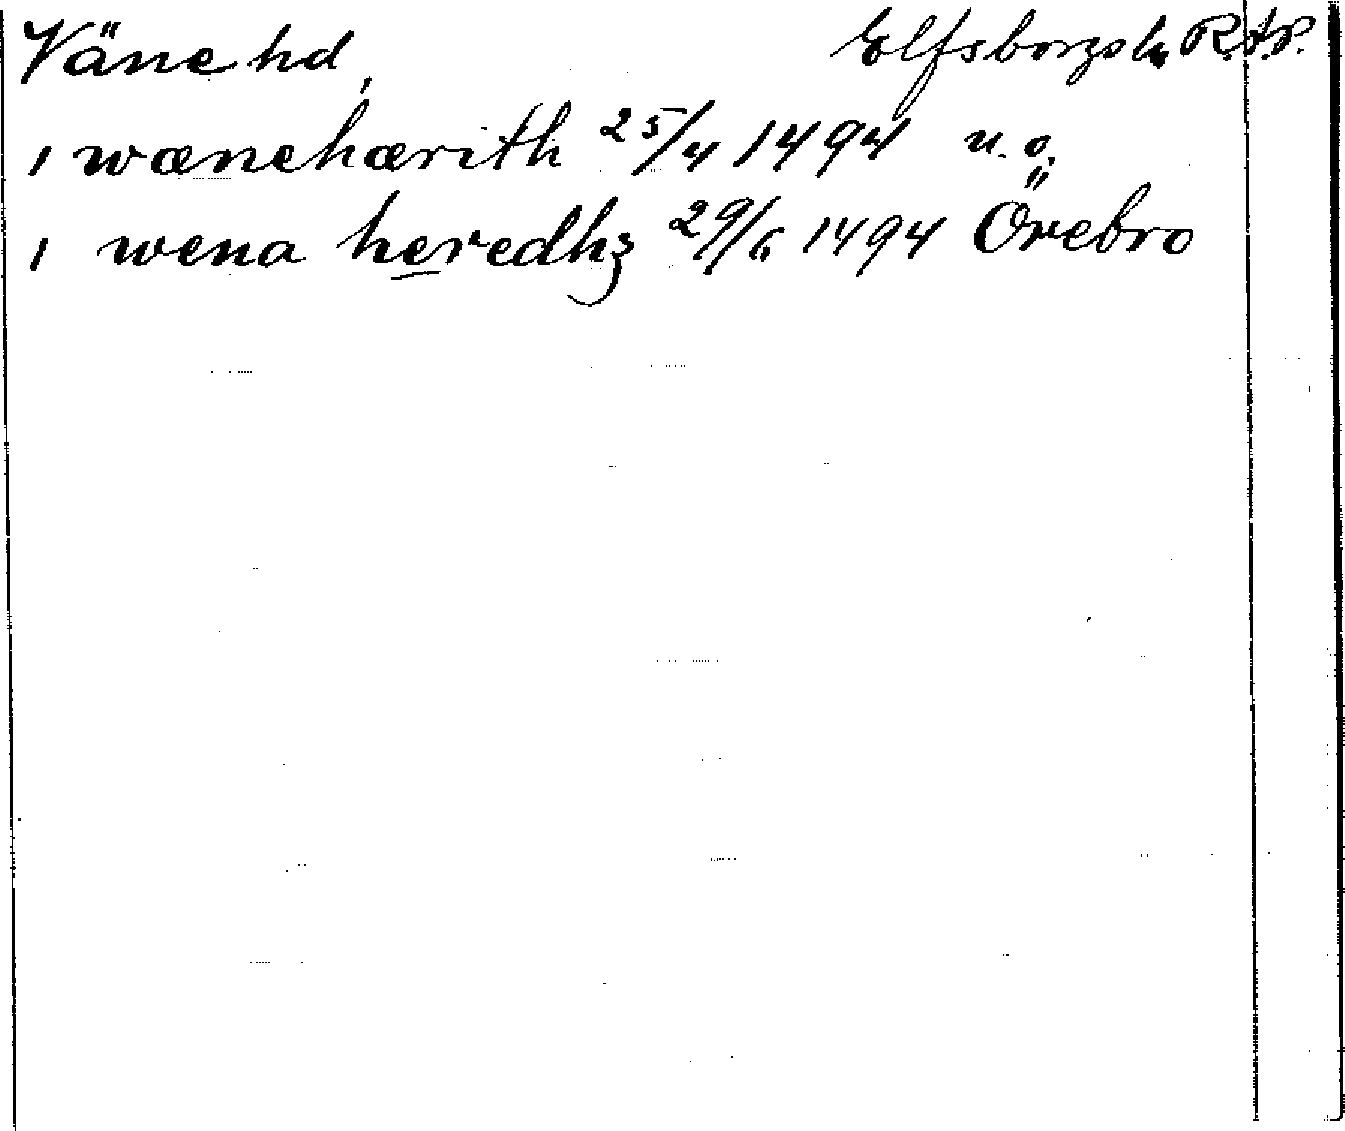 Väne hd, Elfsborgs l. R.A.P.
i wænehærith 25/4 1494 u.o.
i wena heredhz 29/6 1494 Örebro